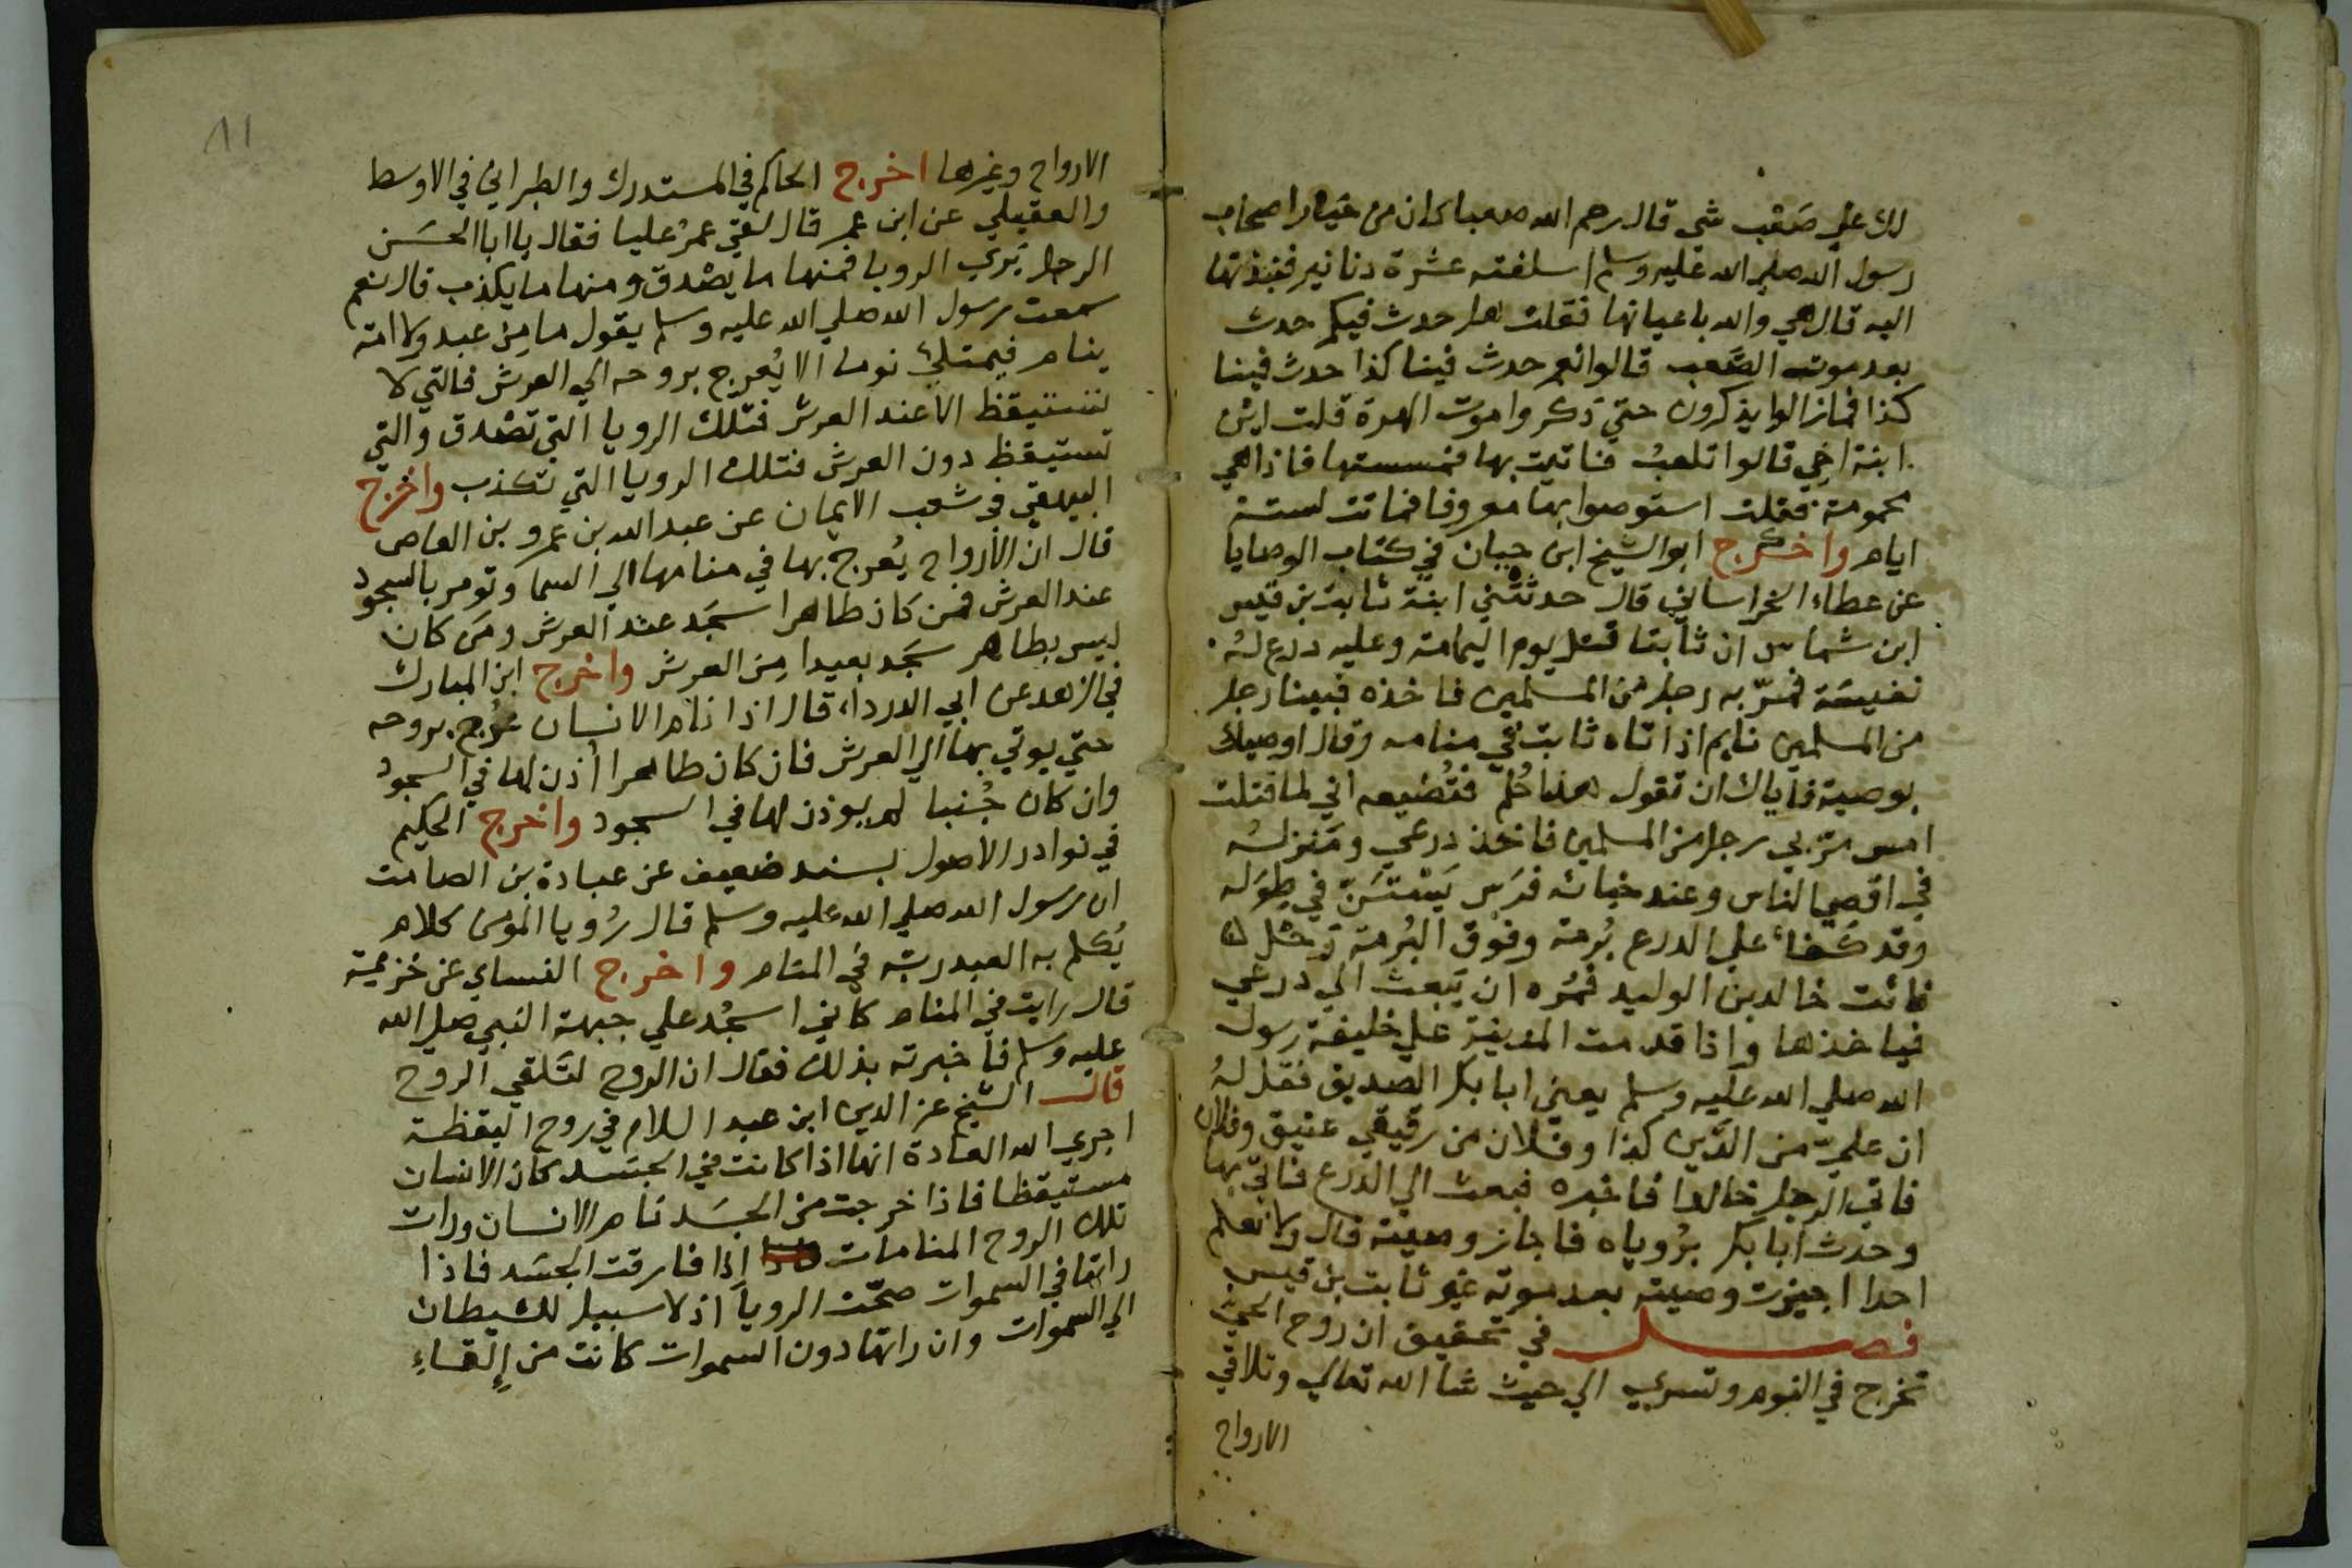 لك علي صَعْب شي قال رحم الله صعبا كان من خيار اصحاب
رسول الله صلي الله عليه وسلم اسلفته عشرة دنانير فنبذتها
اليه قال هي والله باعيانها فقلت هل حدث فيكم حدث
بعد موت الصَّعب قالوا نعم حدث فينا كذا حدث فينا
كذا فما زالوا يذكرون حتي ذكروا موت الهرة قلت اين
ابنة اخي قالوا تلعبُ فاتيت بها فمسستها فاذا هي
محمومة فقلت استوصوا بها معروفا فماتت لستة
ايام واخرج ابو الشيخ ابن حبان في كتاب الوصايا
عن عطاء الخراساني قال حدثتني ابنة ثابت بن قيس
ابن شماس ان ثابتا قتل يوم اليمامة وعليه درع لهُ
نفيسَة فمرّ به رجل من المسلمين فاخذه فبينا رجل
من المسلمين نايم اذ اتاه ثابت في منامه وقال اوصيك
بوصية فاياك ان تقول هذا حُلم فتُضيعه اني لما قتلت
امس مرّ بي رجل من المسلمين فاخذ درعي ومنزلهُ
في اقصي الناس وعند خبائه فرَس يَسْتَنّ في طِوَله
وقد كَفاءَ علي الدرع بُرمة وفوق البُرمة رَحْل
فائت خالد بن الوليد فمُره ان يَبعث الي درعي
فياخذها واذا قدمت المدينة علي خليفة رسول
الله صلي الله عليه وسلم يعني ابا بكر الصديق فقل لهُ
ان عليّ من الدَّين كذا وفلان من رقيقي عتيق وفلان
فاتي الرجل خالدا فاخبره فبعث الي الدرع فاتي بها
وحدث ابا بكر برُوياه فاجاز وصيته قال ولا نعلم
احدا اجيزت وصيته بعد موته غير ثابت بن قيس
فصل في تحقيق ان روح الحيّ
تخرج في النوم وتسري الي حيث شا الله تعالي وتلاقي
الارواح
٨١
الارواح وغيرها اخرج الحاكم في المستدرك والطبراني في الاوسط
والعقيلي عن ابن عمر قال لقي عمرُ عليا فقال يا ابا الحسَن
الرجل يَري الرويا فمنها ما يصْدق ومنها ما يكذب قال نعم
سمعت رسول الله صلي الله عليه وسلم يقول ما مِن عبد ولا امة
ينام فيمتلئ نوما الا يُعرج بروحه الي العرش فالتي لا
تستيقظ الا عند العرش فتلك الرويا التي تصْدق والتي
تستيقظ دون العرش فتلك الرويا التي تكذب واخرج
البيهقي في شعب الايمان عن عبد الله بن عمرو بن العاص
قال ان الارواح يُعرج بها في منامها الي السما وتومر بالسجود
عند العرش فمن كان طاهرا سجَد عند العرش ومن كان
ليس بطاهر سجَد بعيدا مِن العرش واخرج ابن المبارك
في الزهد عن ابي الدرداء قال اذا نام الانسان عُرج بروحه
حتي يوتي بها الي العرش فان كان طاهرا أذن لها في السجود
وان كان جُنبا لم يوذن لها في السجود واخرج الحكيم
في نوادر الاصول بسند ضعيف عن عبادة بن الصامت
ان رسول الله صلي الله عليه وسلم قال رُويا المومن كلام
يُكلم به العبد ربّه في المنام واخرج النساي عن خزيمة
قال رايت في المنام كأني اسجُد علي جبهة النبي صلي الله
عليه وسلم فاخبرته بذلك فقال ان الروح لتَلقي الروح
قال الشيخ عز الدين ابن عبد السلام في روح اليقظة
اجري الله العادة انها اذا كانت في الجسَد كان الانسان
مستيقظا فاذا خرجت من الجسَد نام الانسان ورات
تلك الروح المنامات اذا فارقت الجسَد فاذا
راتها في السموات صحّت الرويا اذ لا سبيل للشيطان
الي السموات وان راتها دون السموات كانت من إلقاءِ